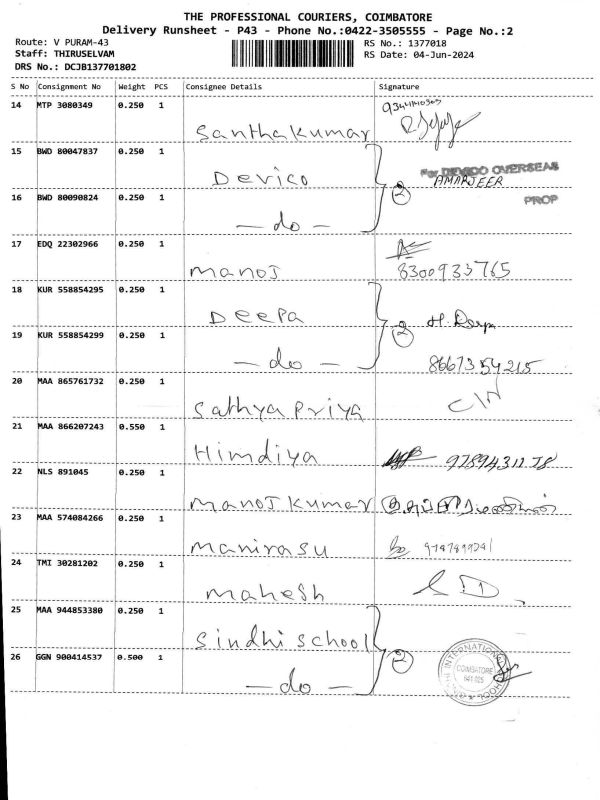 THE PROFESSIONAL COURIERS, COIMBATORE
Delivery Runsheet - P43 - Phone No.:0422-3505555 - Page No.:2
Route: V PURAM-43
RS No.: 1377018
Staff: THIRUSELVAM
RS Date: 04-Jun-2024
DRS No.: DCJB137701802
S No Consignment No Weight PCS Consignee Details Signature
14 MTP 3080349 0.250 1
Santhakumar
15 BWD 80047837 0.250 1
Devico
For DEVICO OVERSEAS
AMARJEER
2
16 BWD 80090824 0.250 1
PROP
- do -
17 EDQ 22302966 0.250 1
manoj 8300933765
18 KUR 558854295 0.250 1
Deepa
2
19 KUR 558854299 0.250 1
- do - 8667354215
20 MAA 865761732 0.250 1
Sathya Priya
21 MAA 866207243 0.550 1
Himdiya
22 NLS 891045 0.250 1
manoj kumar
23 MAA 574084266 0.250 1
manirasu
24 TMI 30281202 0.250 1
mahesh
25 MAA 944853380 0.250 1
Sindhi School
2
26 GGN 900414537 0.500 1
INTERNATIONAL SCHOOL
COIMBATORE
641 025
- do -